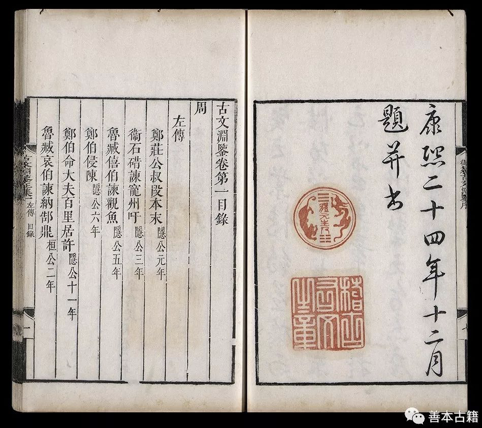 康熙二十四年十二月
題并書
稽古
右文
之章
古文淵鑒卷第一目錄
周
左傳
鄭莊公叔段本末隱公元年
衛石碏諫寵州吁隱公三年
魯臧僖伯諫觀魚隱公五年
鄭伯侵陳隱公六年
鄭伯命大夫百里居許隱公十一年
魯臧哀伯諫納郜鼎桓公二年
左傳 目錄
一
善本古籍